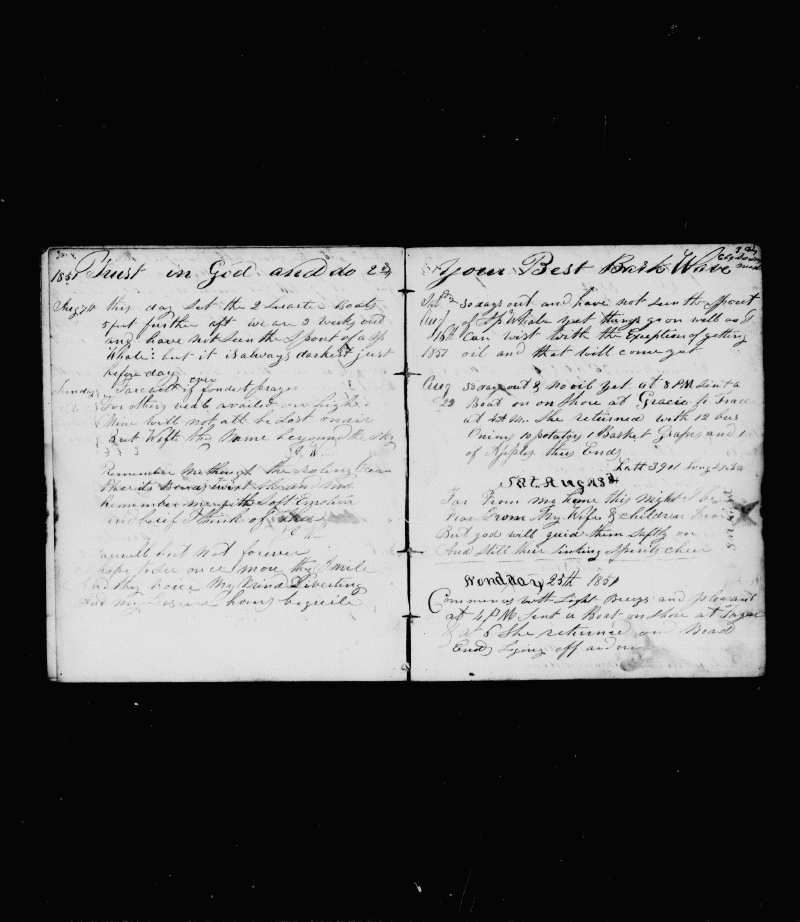 1851 Trust in God and do
Aug 7th this day set the 2 quarter Boats
5 feet further aft we are 3 weeks out
and have not seen the Spout of a Sp
Whale: but it is always darkest just
before day
Sunday Farewell if ever fondest prayer
For others weal availed on high
Mine will not all be Lost in air
But Waft thy Name beyond the sky
Remember me though the rolling
remember me with Soft Emotion
and believe I think of thee
Farewell but not forever
I hope to see once more thy Smile
and thy voice My Mind Diverting
and my Leisure hours beguile
your Best Bark Wave
30 days out and have not seen the Spout
of Sp Whale yet things go on well as I
Can wish with the Exception of getting
oil and that will come yet
Aug
16th
1851
Aug 35 days out & no oil yet at 8 PM Sent a
22 Boat on on Shore at Gracia to Trade
at 4 She returned with 12 bus
Onions 10 potatoes 1 Basket Grapes and 1
of Apples thus Ends
Latt 39 11 Long
Sat. Aug 23d
Far From my home this Night I
Far From My Wife & children Dear
But god will guid them Saftly on
And Still their Sinking Spirits cheer
Monday 25th 1851
Commences with Light Breezes and pleasant
at 4 PM Sent a Boat on shore at
& at 6 She returned on Board
Ends Lying off and on